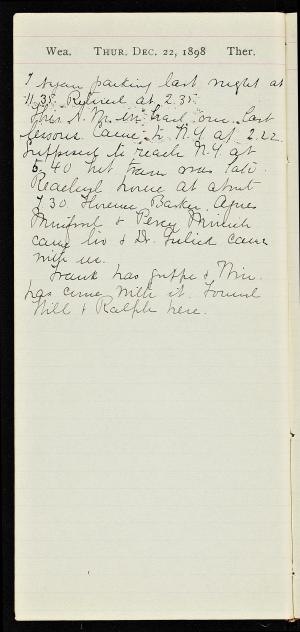 Wea. THUR. DEC. 22, 1898 Ther.
I began packing last night at
11.35. Retired at 2.35.
This A.M. in had our last
lessons Came to N.Y. at 2.22
Supposed to reach N.Y. at
5.40 but train was late.
Reached home at about
7.30 Florence Barker, Agnes
& Percy
came too & Dr. came
with us.
Frank has grippe & Min.
has come with it. Found
Will & Ralph here.